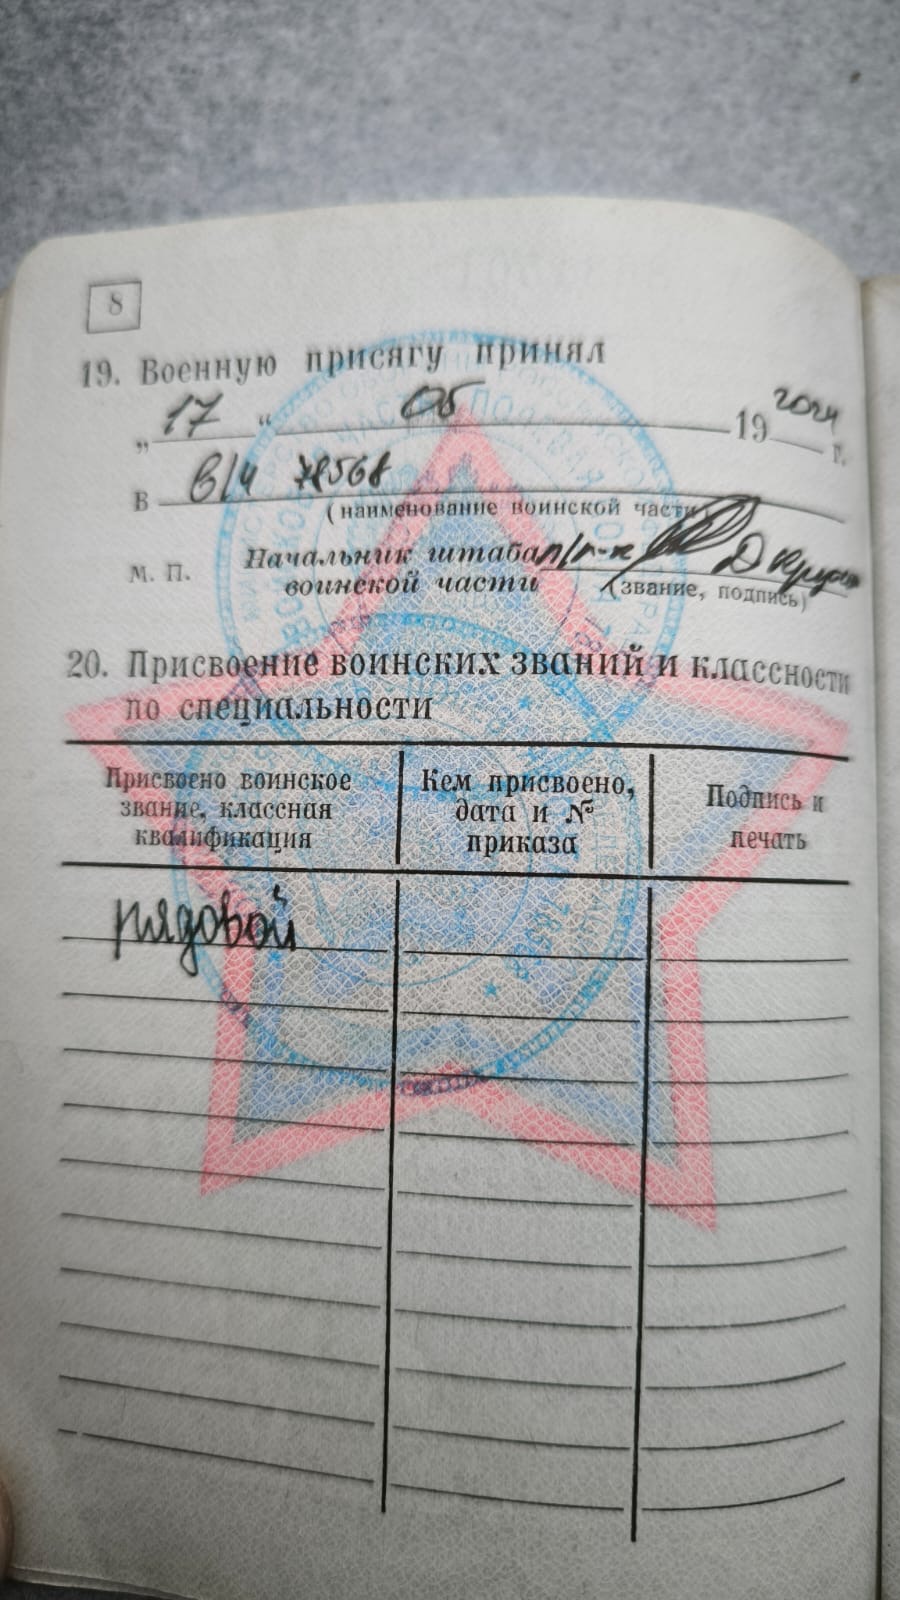 8
19. Военную присягу принял
„ 17 “ 05 19 2024 г.
В в/ч 78568
(наименование воинской части)
М. П. Начальник штаба п/п-к
воинской части (звание, подпись)
20. Присвоение воинских званий и классности
по специальности
Присвоено воинское звание, классная квалификация
Кем присвоено, дата и № приказа
Подпись и печать
рядовой